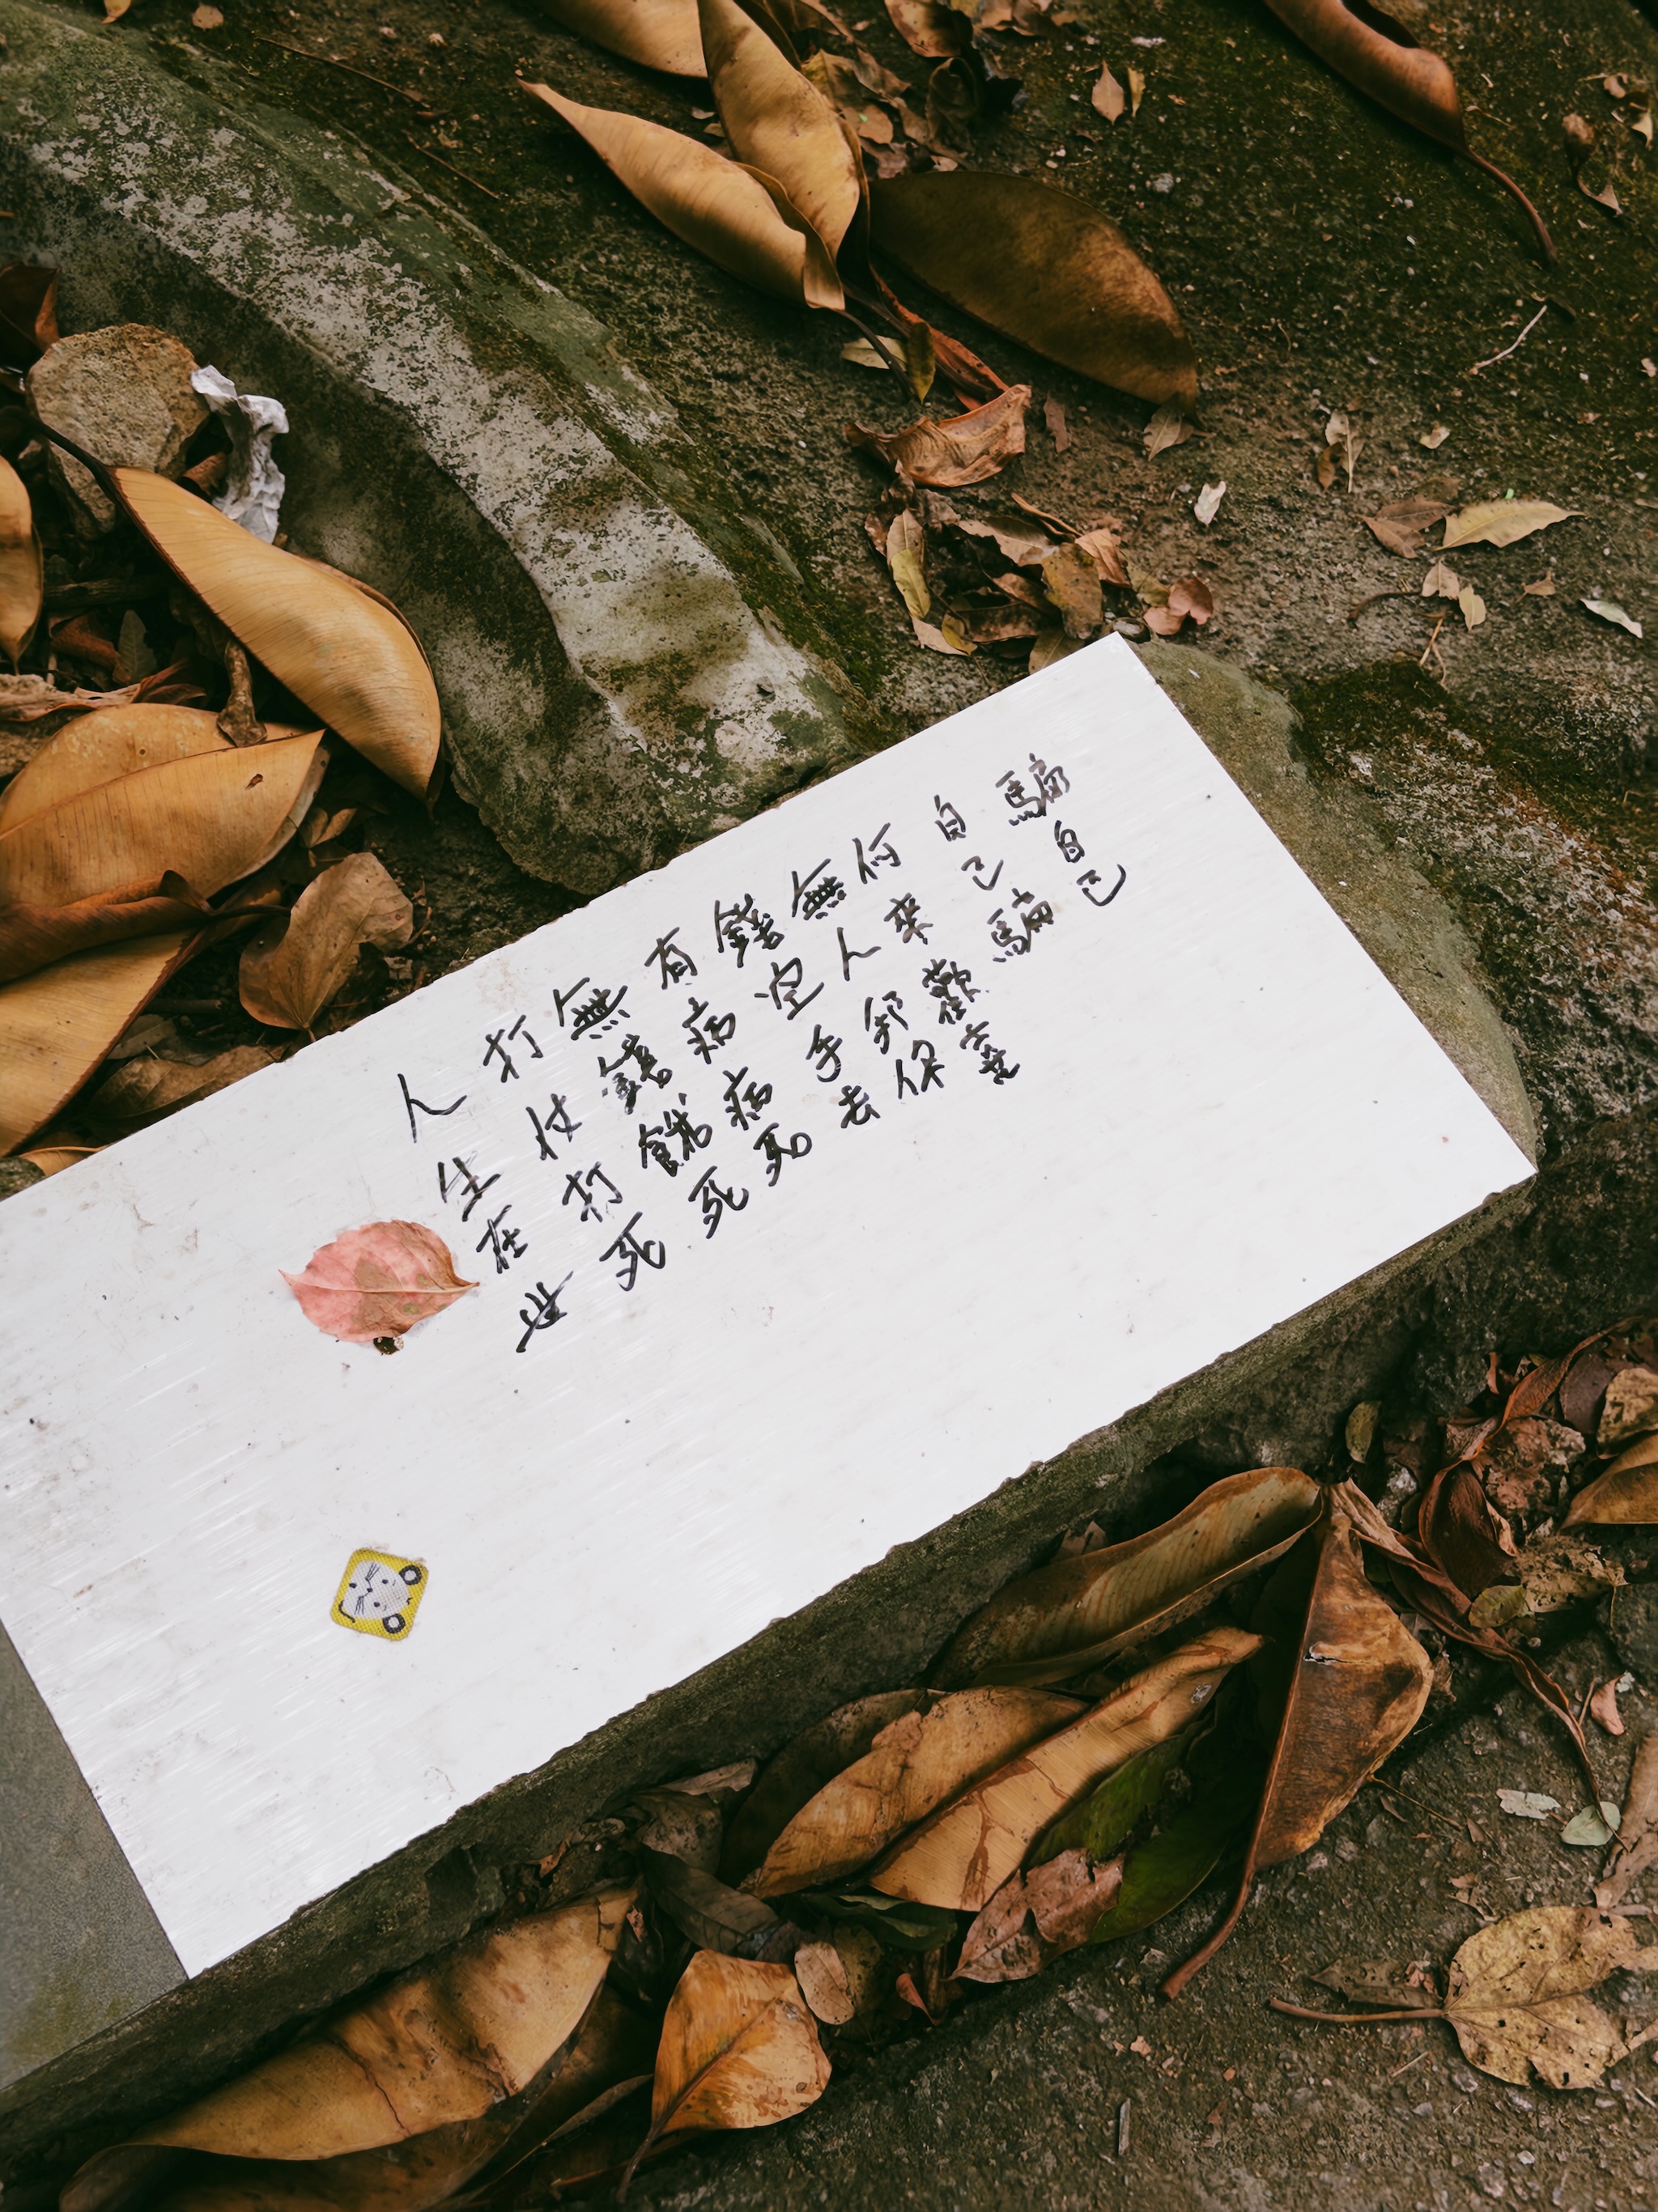 人生在世
打仗打死
無錢餓死
有病病死
錢空手去
無人你
何來歡喜
自己騙
騙自己